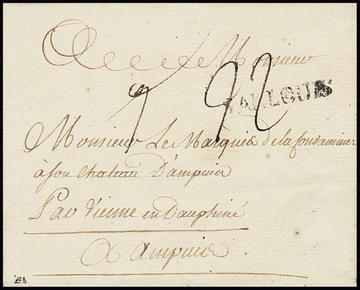 A Monsieur
9 92
Monsieur Le Marquis de la fondaminier
à son Chateau D'ampuis
Par Vienne en Dauphiné
A Ampuis